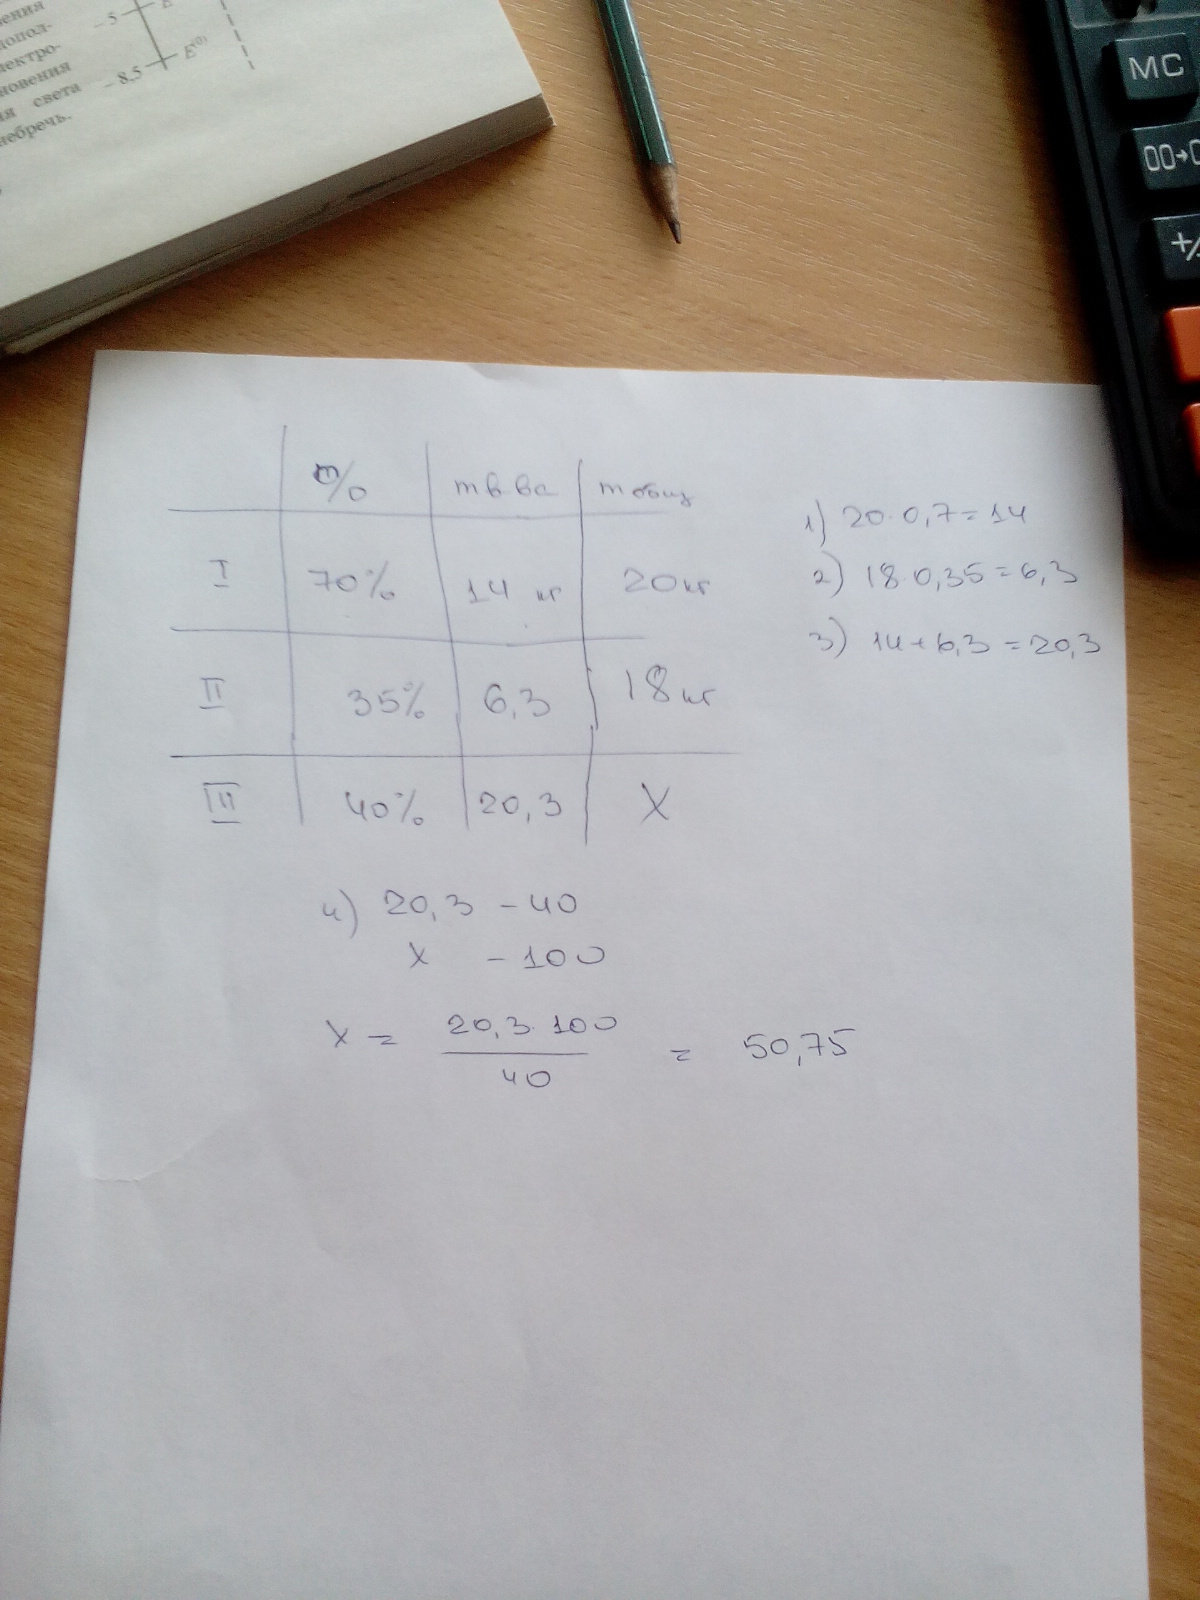 ения
допол-
лектро-
новения
ия света
небречь.
-5 E
-8,5 E(0)
MC
00→0
+/
% m в-ва m общ
I 70% 14 кг 20кг
II 35% 6,3 18кг
III 40% 20,3 X
1) 20·0,7=14
2) 18·0,35=6,3
3) 14+6,3=20,3
4) 20,3 - 40
X - 100
X = 20,3·100
40
= 50,75